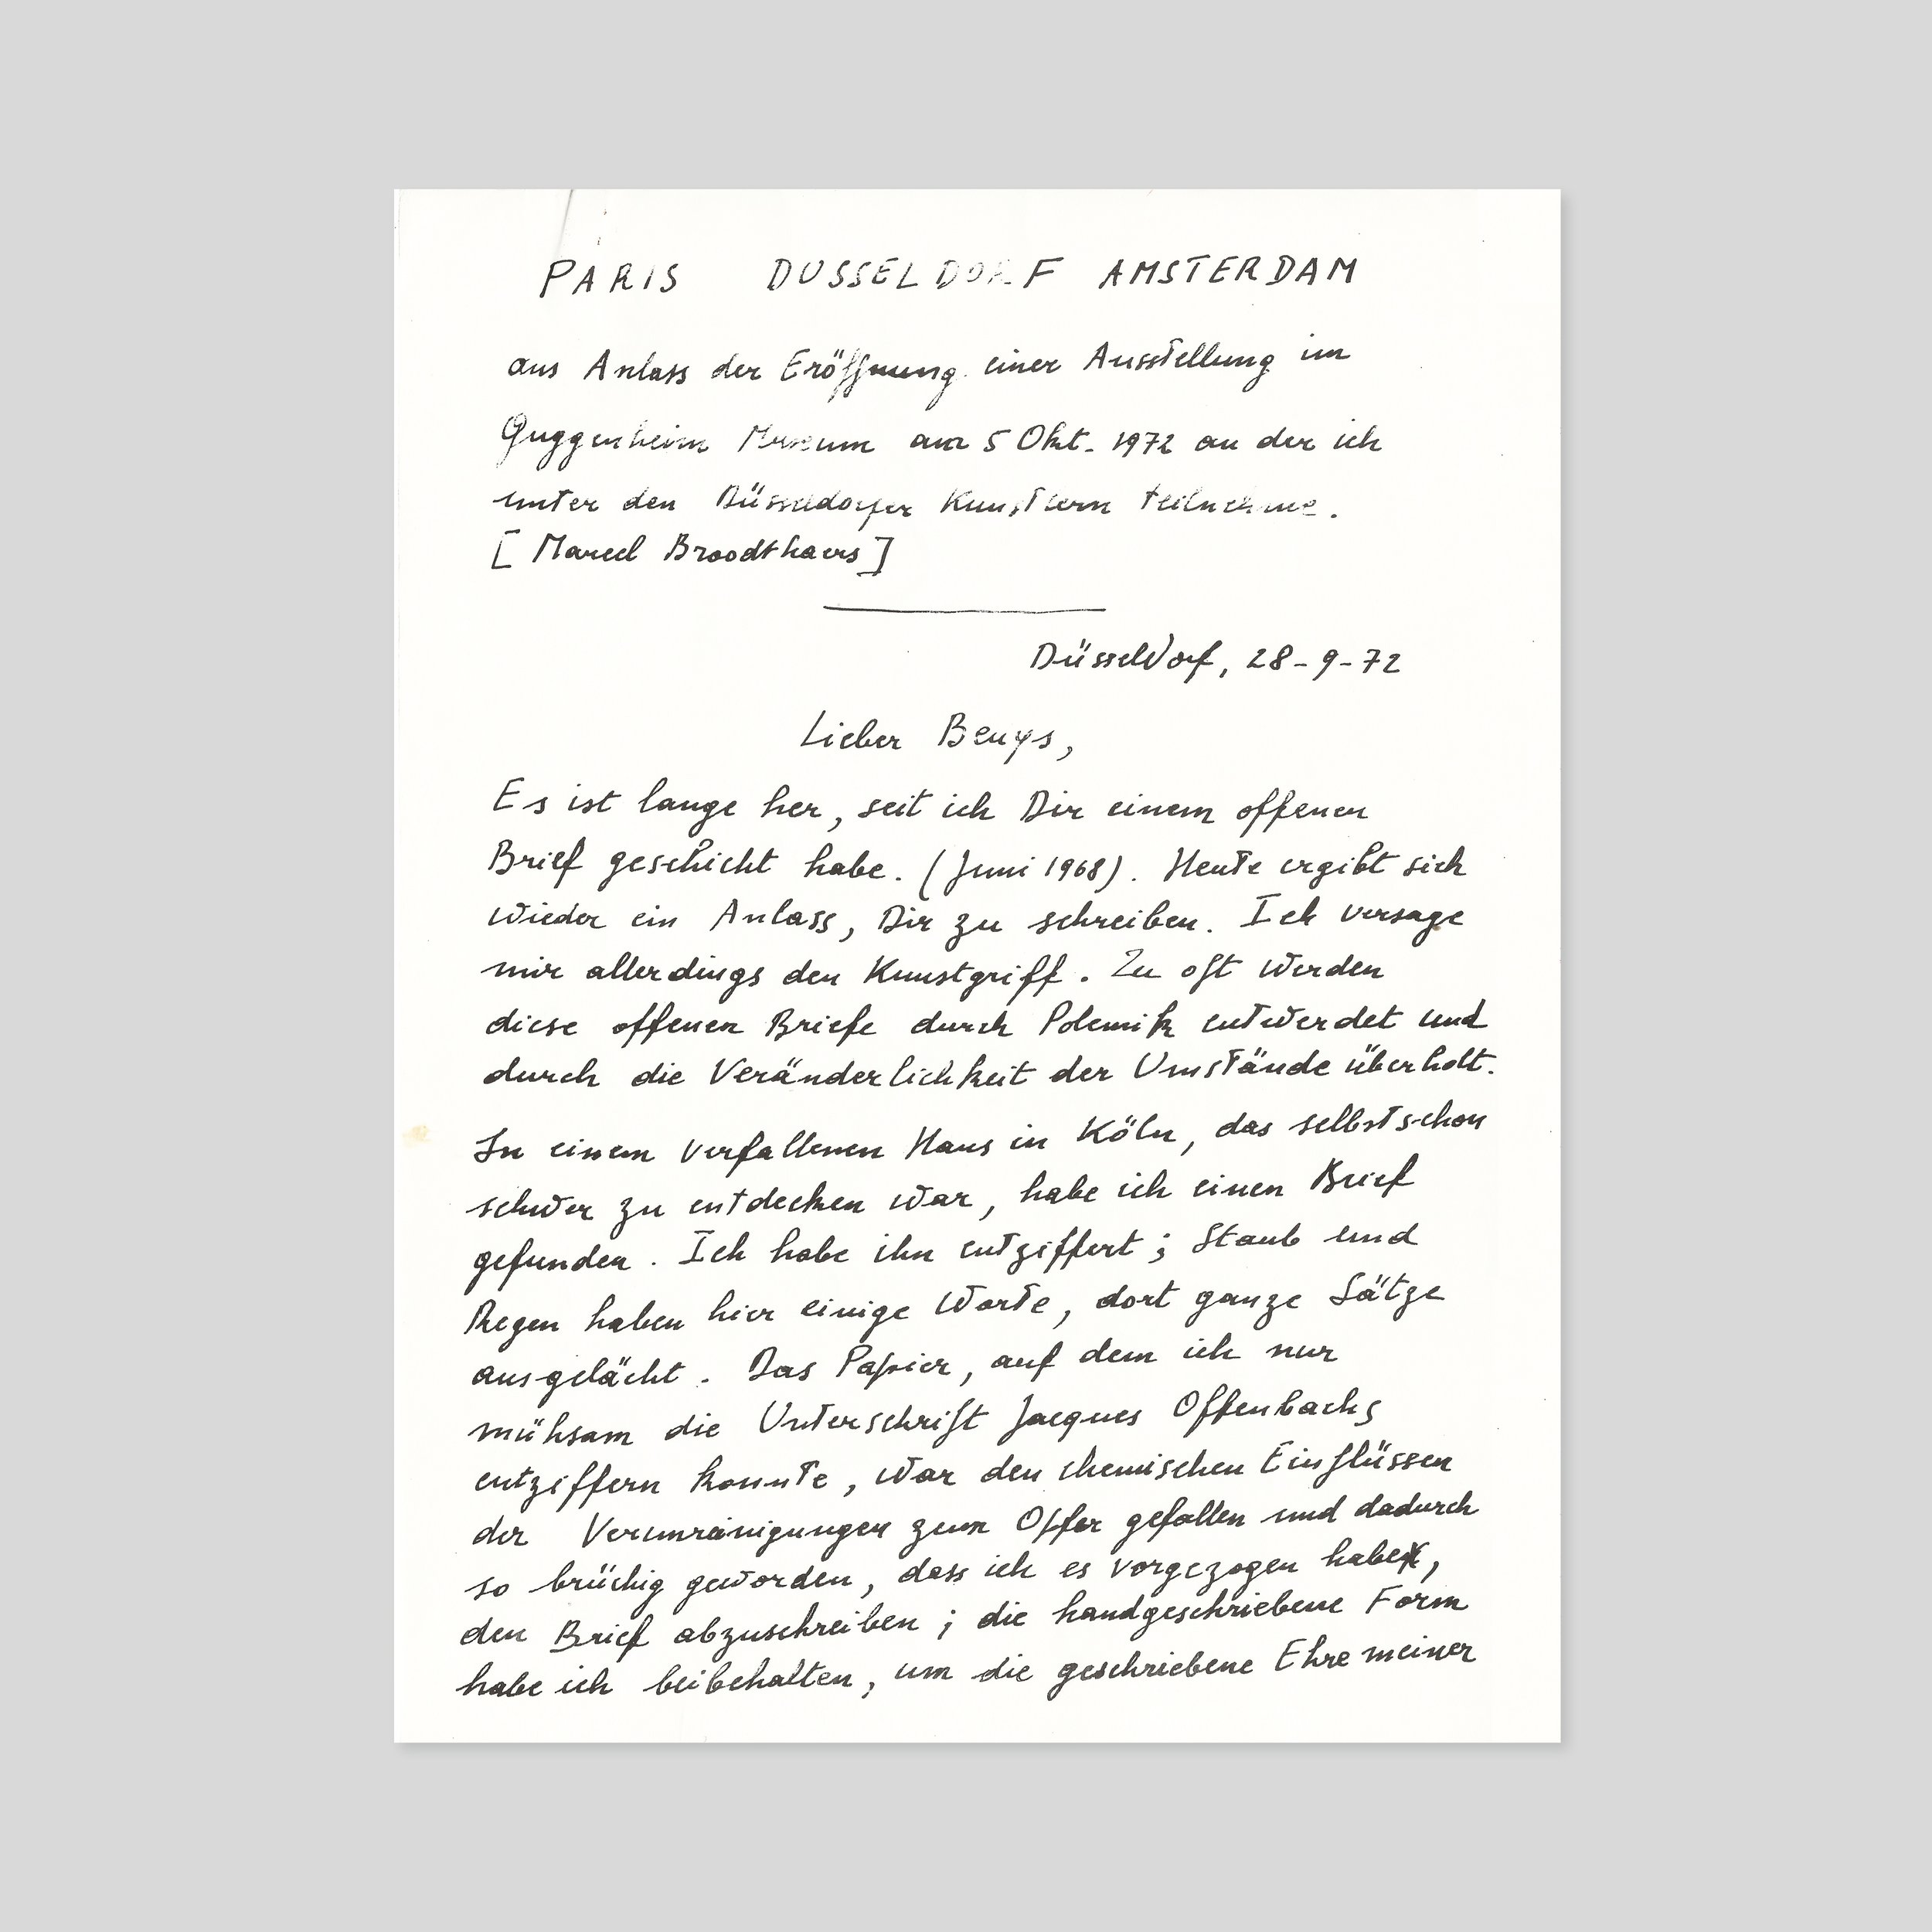 PARIS DUSSELDORF AMSTERDAM
aus Anlass der Eröffnung einer Ausstellung im
Guggenheim Museum am 5 Okt. 1972 an der ich
unter den Düsseldorfer Kunstlern teilnehme.
[ Marcel Broodthaers ]
Düsseldorf, 28-9-72
Lieber Beuys,
Es ist lange her, seit ich Dir einem offenen
Brief geschickt habe. (Juni 1968). Heute ergibt sich
wieder ein Anlass, Dir zu schreiben. Ich versage
mir allerdings den Kunstgriff. Zu oft werden
diese offenen Briefe durch Polemik entwerdet und
durch die Veränderlichkeit der Umstände überholt.
In einem verfallenen Haus in Köln, das selbst schon
schwer zu entdecken war, habe ich einen Brief
gefunden. Ich habe ihn entziffert ; Staub und
Regen haben hier einige Worte, dort ganze Sätze
ausgelächt. Das Papier, auf dem ich nur
mühsam die Unterschrift Jacques Offenbachs
entziffern konnte, war den chemischen Einflüssen
der Verunreinigungen zum Opfer gefallen und dadurch
so brüchig geworden, dass ich es vorgezogen habe,
den Brief abzuschreiben ; die handgeschriebene Form
habe ich beibehalten, um die geschriebene Ehre meiner